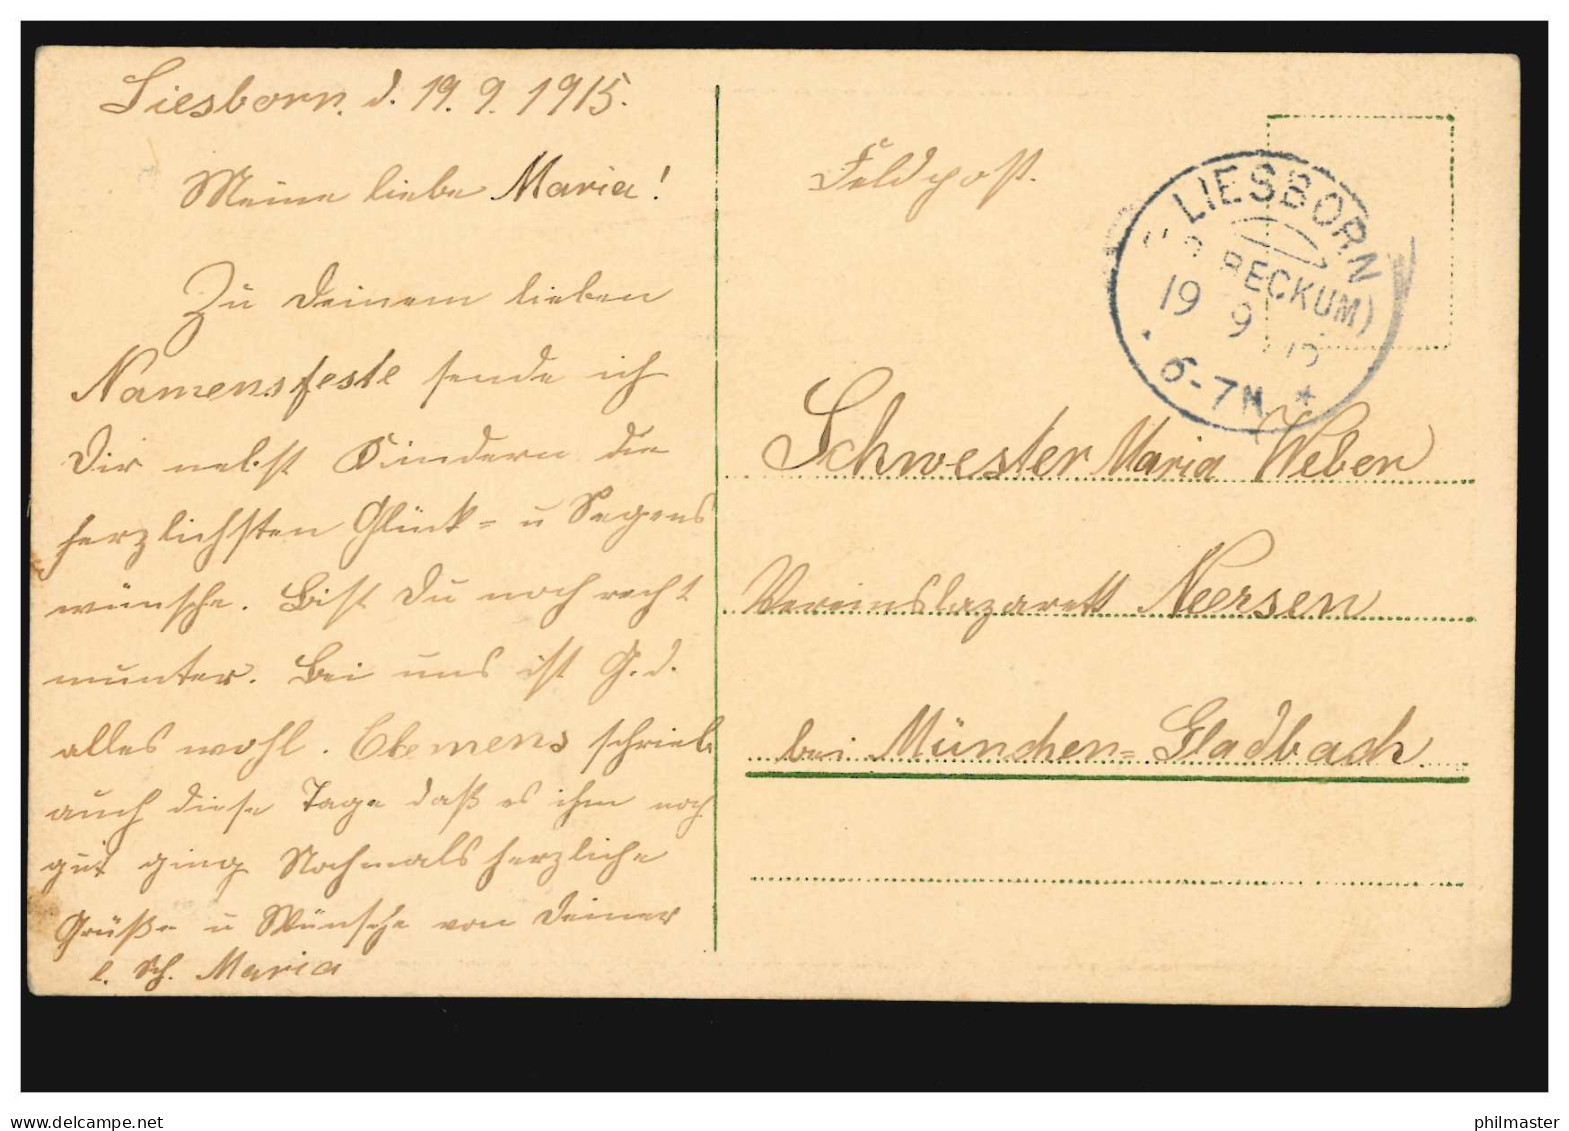 Liesborn, d. 19. 9. 1915.
Meine liebe Maria!
Zu Deinem lieben
Namensfeste sende ich
Dir nebst Kindern die
herzlichsten Glück- u Segens
wünsche. Bist Du noch recht
munter. Bei uns ist G. d.
alles wohl. Clemens schrieb
auch diese Tage daß es ihm noch
gut ging Nochmals herzliche
Grüße u Wünsche von Deiner
l. Sch. Maria
Feldpost.
LIESBORN
BECKUM)
19 9 15
6-7N
Schwester Maria Weber
Vereinslazarett Neersen
bei München-Gladbach
www.delcampe.net
philmaster